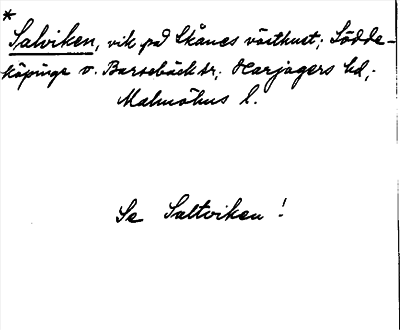 *
Salviken, vik på Skånes västkust; Lödde-
köpinge o. Barsebäck sr; Harjagers hd,;
Malmöhus l.
Se Saltviken!